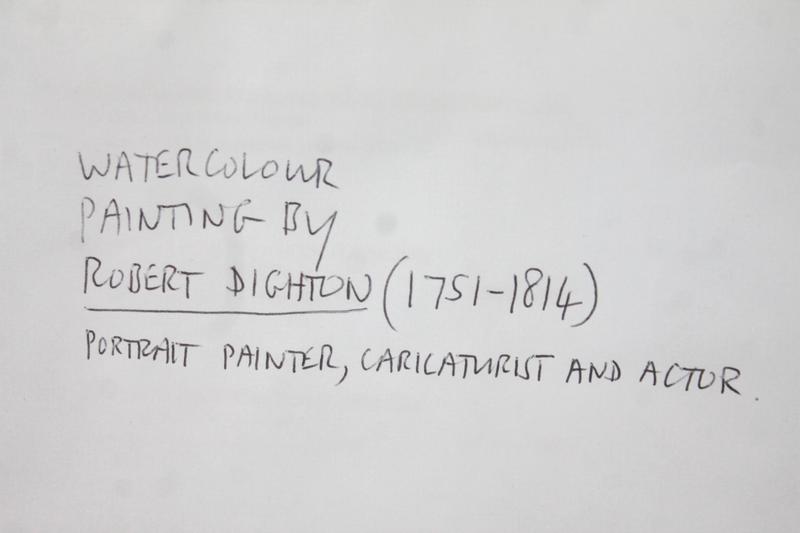 WATERCOLOUR
PAINTING BY
ROBERT DIGHTON (1751-1814)
PORTRAIT PAINTER, CARICATURIST AND ACTOR.